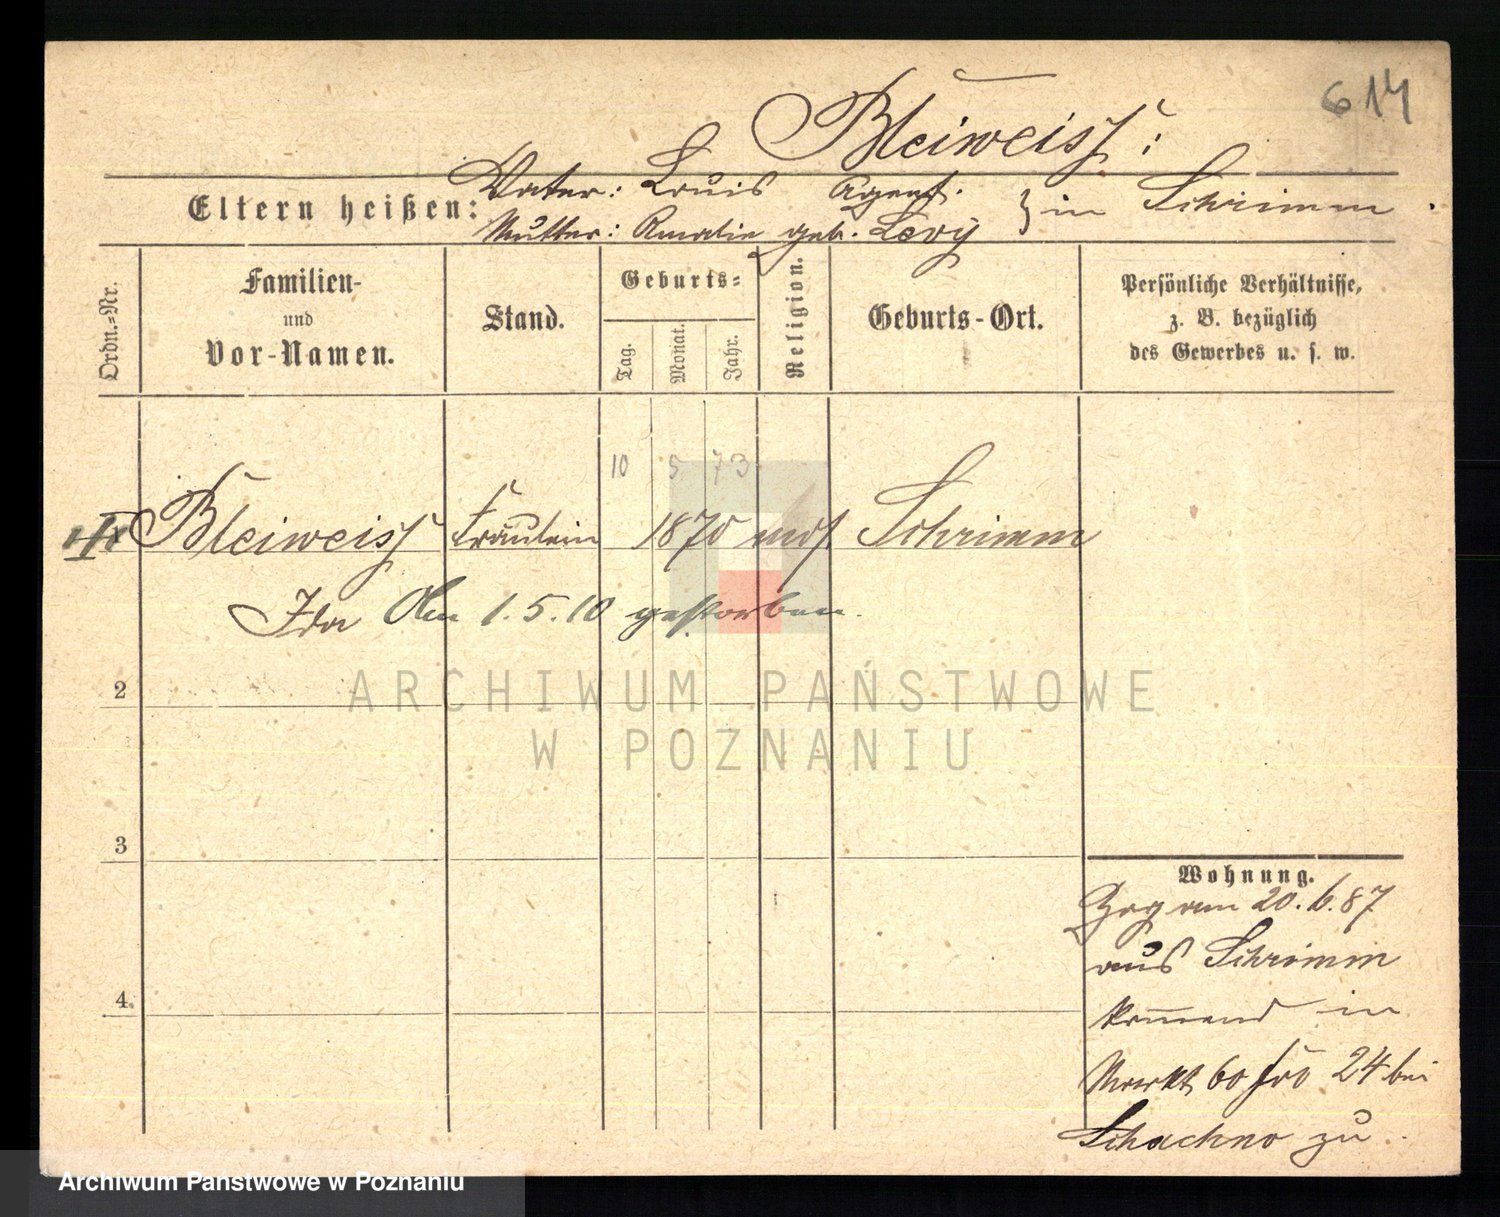 614
Bleiweiss:
Eltern heißen:
Vater: Louis Agent.
Mutter: Amalie geb. Levy
} in Schrimm.
Ordn.-Nr.
Familien-
und
Vor-Namen.
Stand.
Geburts-
Tag.
Monat.
Jahr.
Religion.
Geburts-Ort.
Persönliche Verhältnisse,
z. B. bezüglich
des Gewerbes u. s. w.
10 5 73
Bleiweiss Fräulein 1870 mos. Schrimm
Ida Am 1.5.10 gestorben.
2
3
4.
Wohnung.
Zog am 20.6.87
aus Schrimm
kommend in
Markt 60 24 bei
Schachno zu.
ARCHIWUM PAŃSTWOWE
W POZNANIU
Archiwum Państwowe w Poznaniu